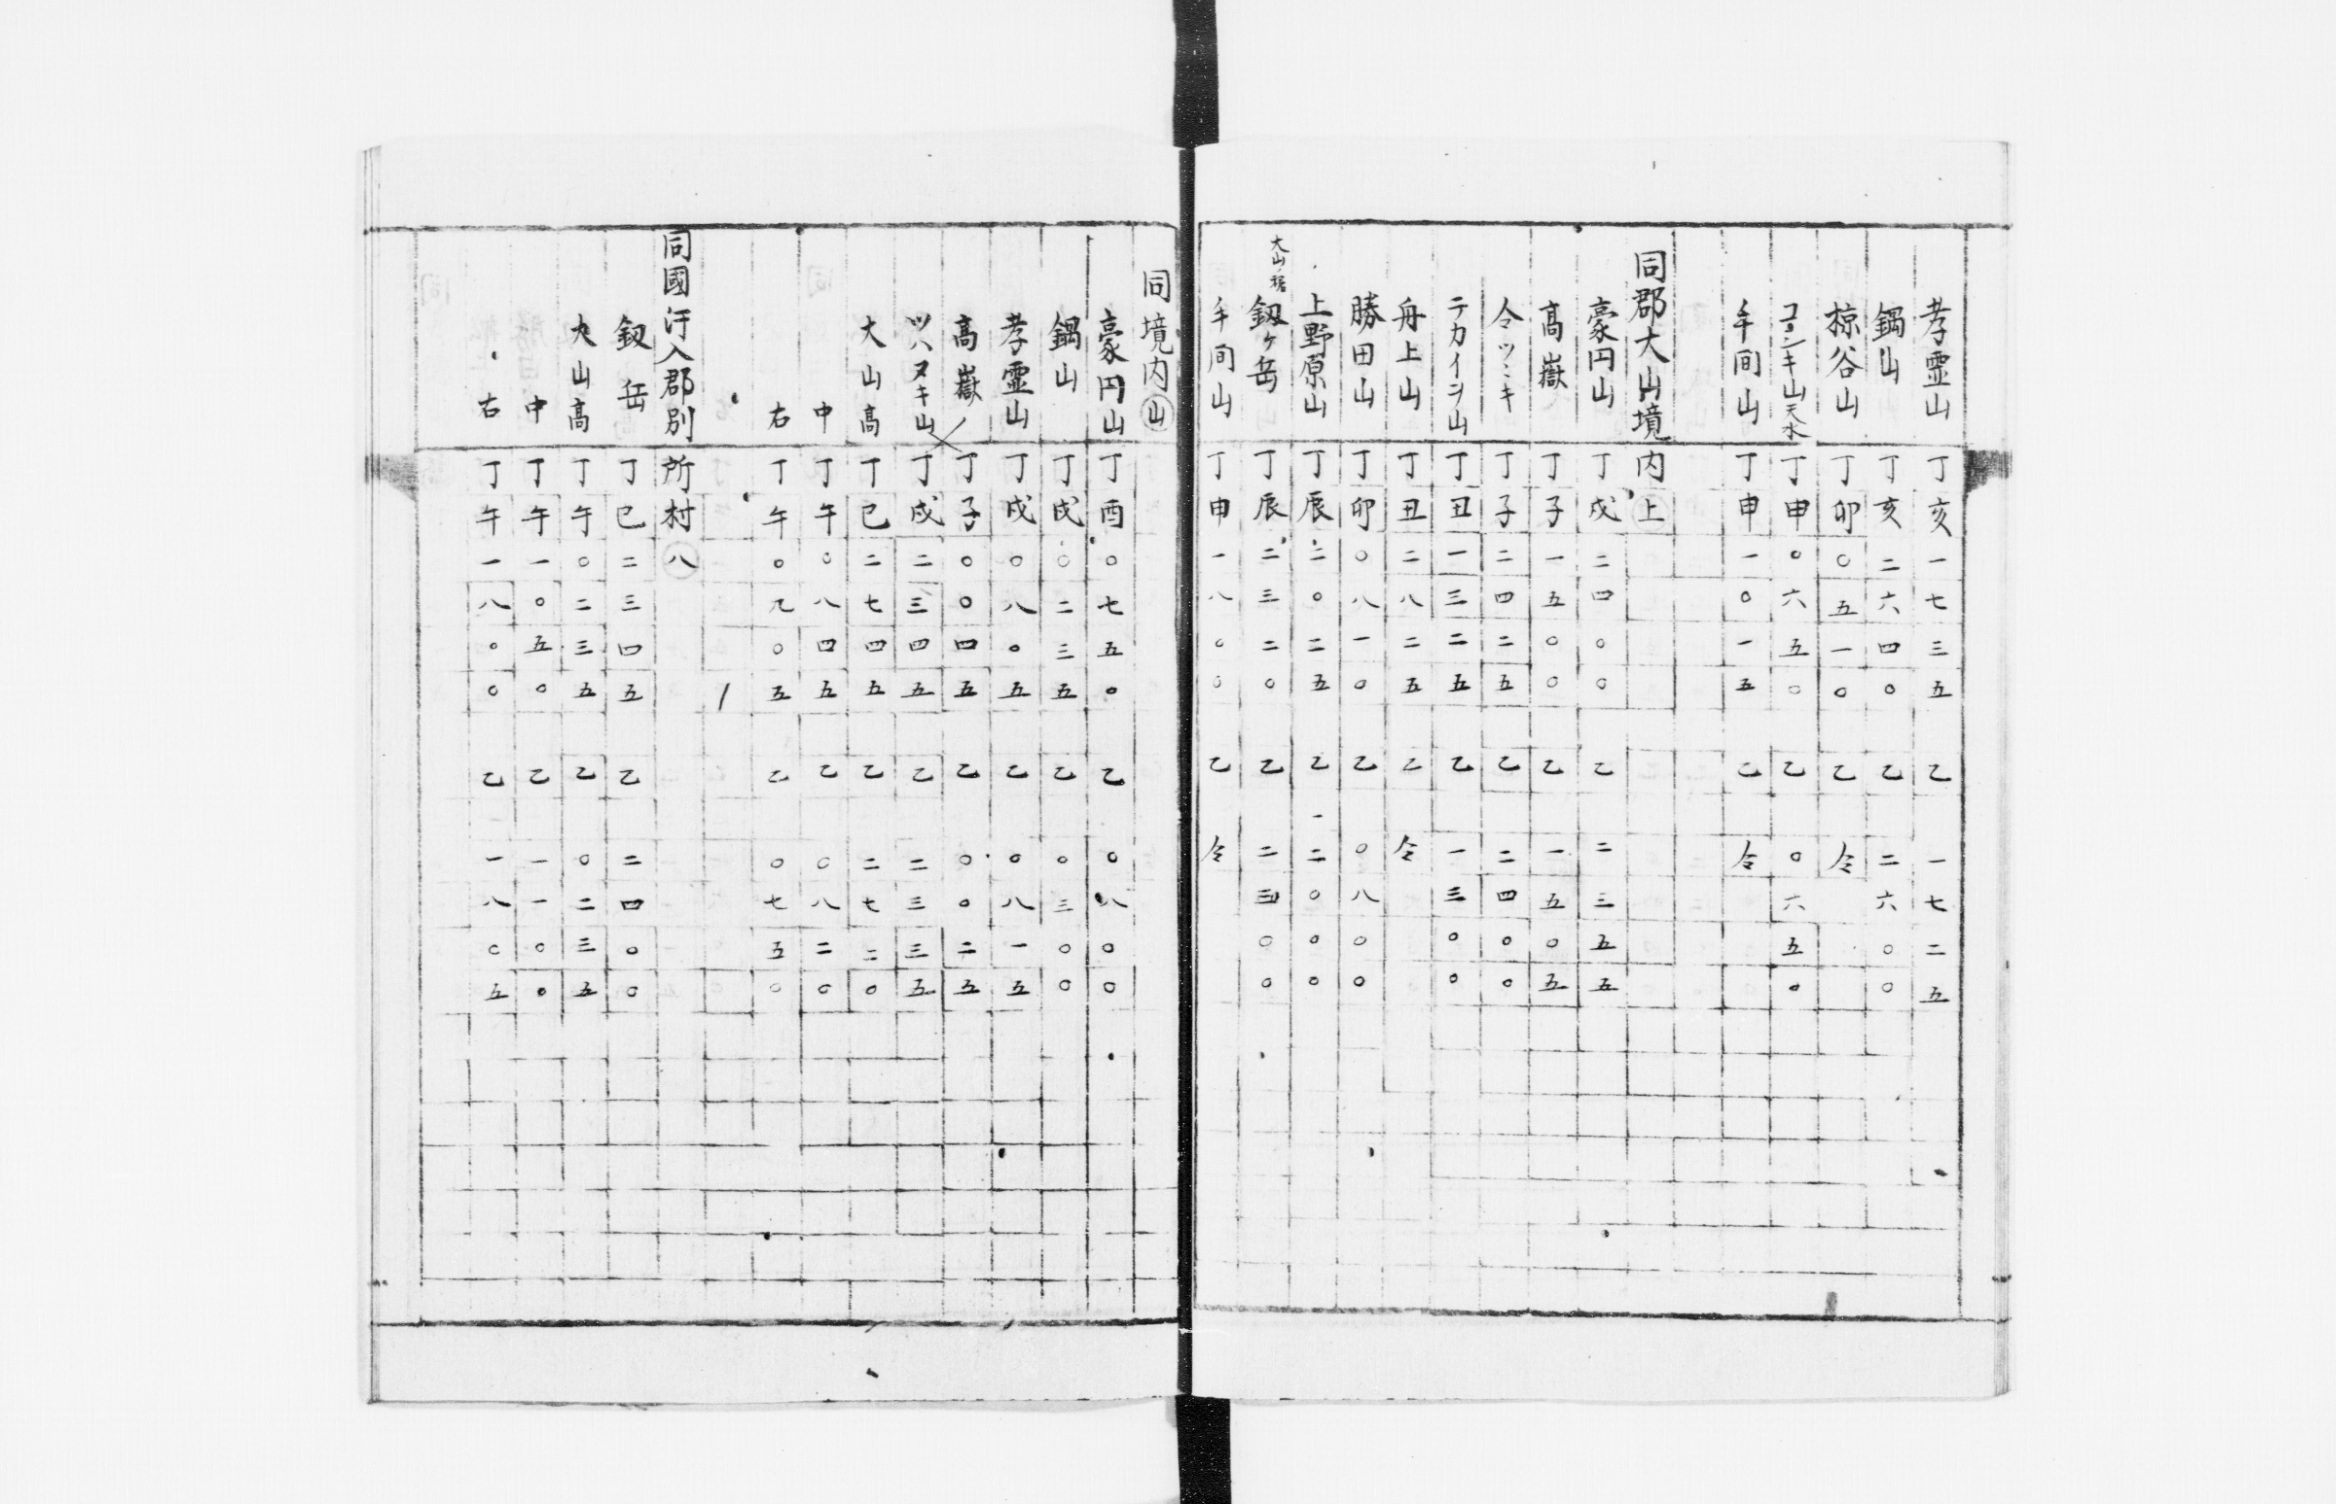 孝霊山 丁亥 一七三五 乙 一七二五
鍋山 丁亥 二六四〇 乙 二六〇〇
椋谷山 丁卯 〇五一〇 乙 仝
キ山天水 丁申 〇六五〇 乙 〇六五〇
手間山 丁申 一〇一五 乙 仝
同郡大山境内 上
豪円山 丁戌 二四〇〇 乙 二三五五
高嶽 丁子 一五〇〇 乙 一五〇五
仝ツヽキ 丁子 二四二五 乙 二四〇〇
テカイシ山 丁丑 一三二五 乙 一三〇〇
舟上山 丁丑 二八二五 乙 仝
勝田山 丁卯 〇八一〇 乙 〇八〇〇
上野原山 丁辰 二〇二五 乙 二〇〇〇
大山ノ 釼ヶ岳 丁辰 二三二〇 乙 二三〇〇
手間山 丁申 一八〇〇 乙 仝
同境内 山
豪円山 丁酉 〇七五〇 乙 〇八〇〇
鍋山 丁戌 〇二三五 乙 〇三〇〇
孝霊山 丁戌 〇八〇五 乙 〇八一五
高嶽ノ 丁子 〇〇四五 乙 〇〇二五
ツハヌキ山 丁戌 二三四五 乙 二三三五
大山高 丁巳 二七四五 乙 二七二〇
中 丁午 〇八四五 乙 〇八二〇
右 丁午 〇九〇五 乙 〇七五〇
同國汗入郡別所村 八
釼岳 丁巳 二三四五 乙 二四〇〇
大山高 丁午 〇二三五 乙 〇二三五
中 丁午 一〇五〇 乙 一一〇〇
右 丁午 一八〇〇 乙 一八〇五